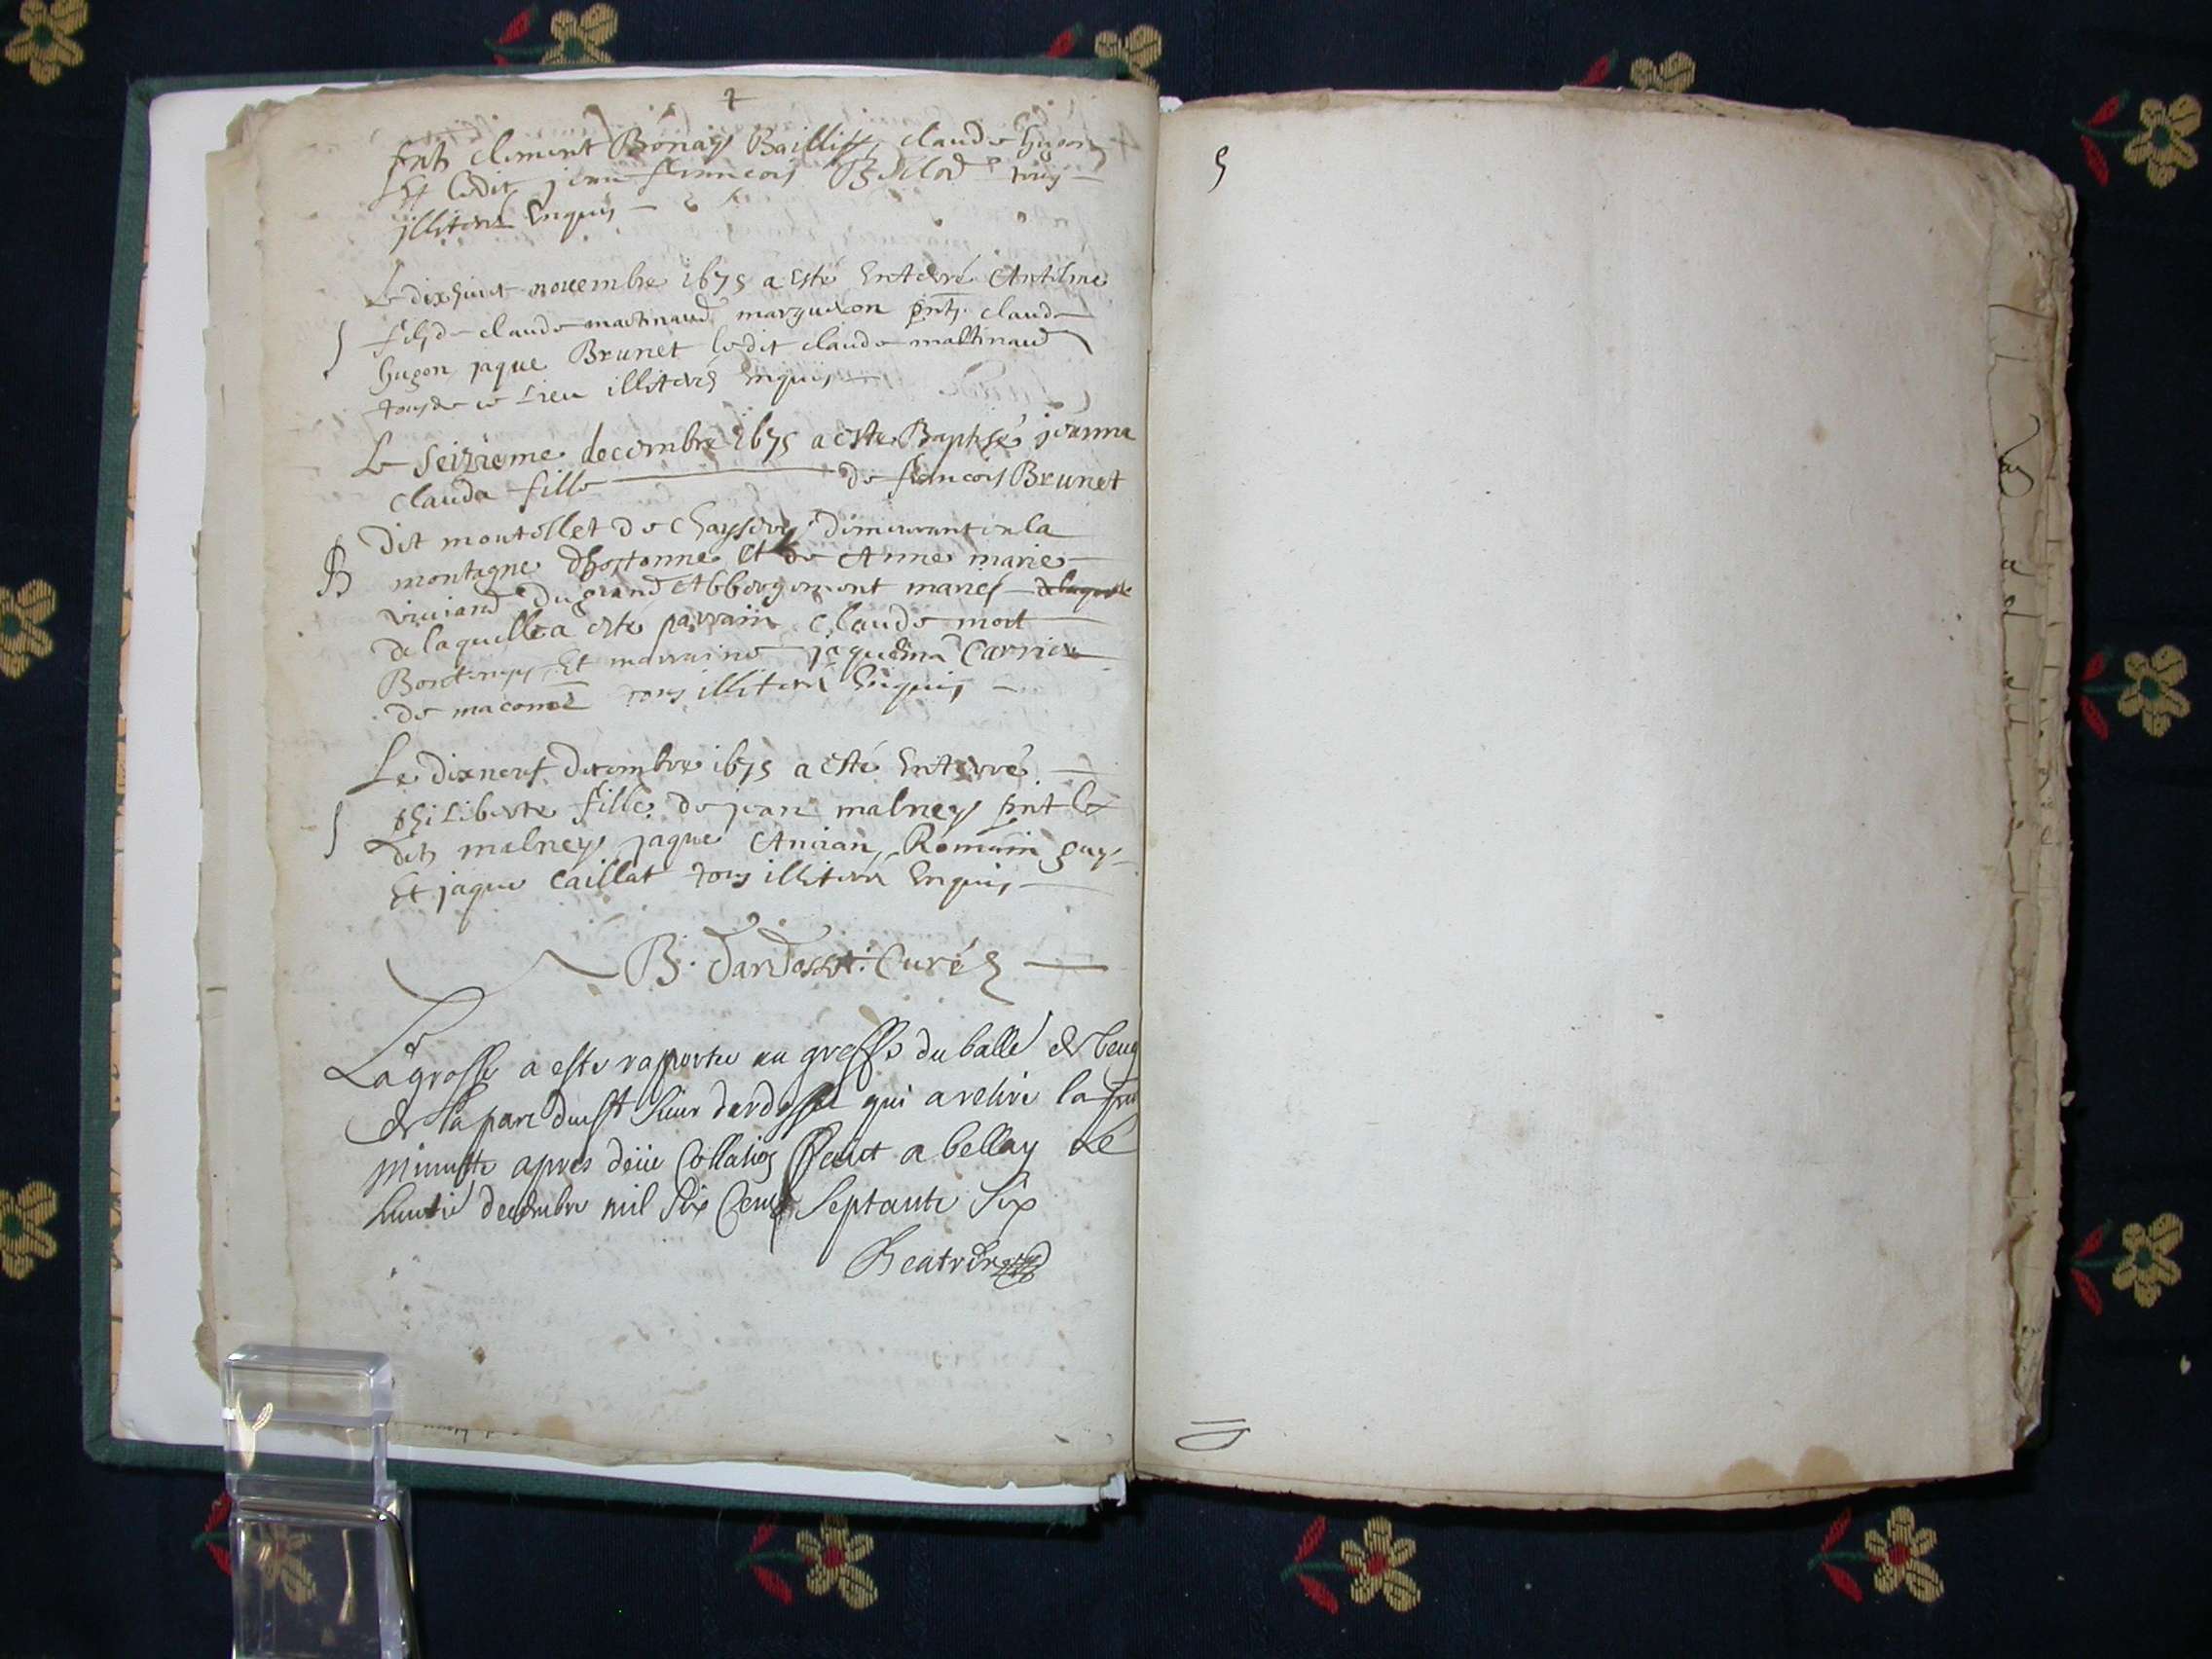 clement Bonay Bailliff claude hugon
Et ledit jean francois tous
illiteré Enquis
Le dixhuit novembre 1675 a esté Enterré Antelme
S
fils de claude martinand margueron pnts. claude
hugon jaque Brunet ledit claude martinand
tous de ce Lieu illiterés Enquis
Le seizieme decembre 1675 a este Baptisé joanna
clauda fille de francois Brunet
Dit moutollet de Chaysery demeurant en la
B
montagne dhostonne Et de Anne marie
viviand Du grand Abbergement mariés
de laquelle a esté parrain Claude mort
Et marraine jaquema Carrier
de macone tous illiteré Enquis
Le dixneuf Decembre 1675 a esté Enterré
S
philiberte fille de jean malney pnt le
dit malney jaque Ancian, Romain guy
Et jaque Caillat tous illiteré Enquis
B. Dardosset Curé
La grosse a este raportee au greffe du balle de beug
de la part dudt sieur dardosset qui a retire la
Minutte apres deüe Collation faict a bellay Le
decembre mil six Cent septante six
5